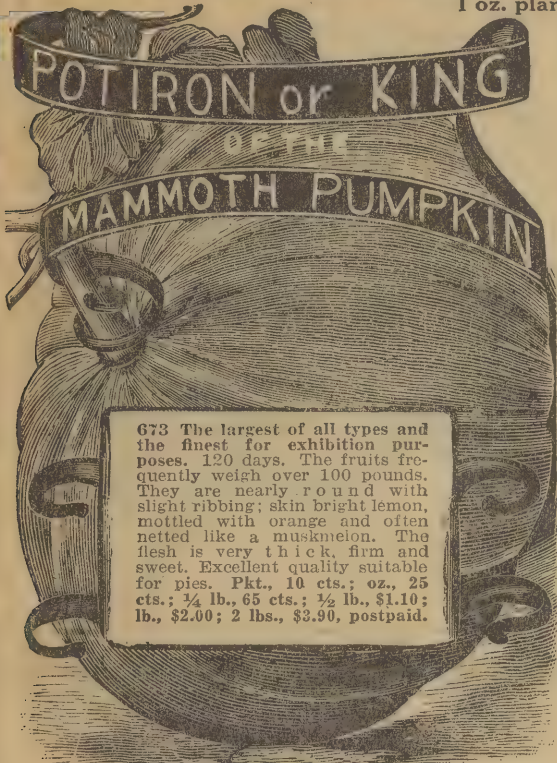 1 oz. plan
POTIRON or KING
OF THE
MAMMOTH PUMPKIN
673 The largest of all types and
the finest for exhibition pur-
poses. 120 days. The fruits fre-
quently weigh over 100 pounds.
They are nearly round with
slight ribbing; skin bright lemon,
mottled with orange and often
netted like a muskmelon. The
flesh is very thick, firm and
sweet. Excellent quality suitable
for pies. Pkt., 10 cts.; oz., 25
cts.; ¼ lb., 65 cts.; ½ lb., $1.10;
lb., $2.00; 2 lbs., $3.90, postpaid.